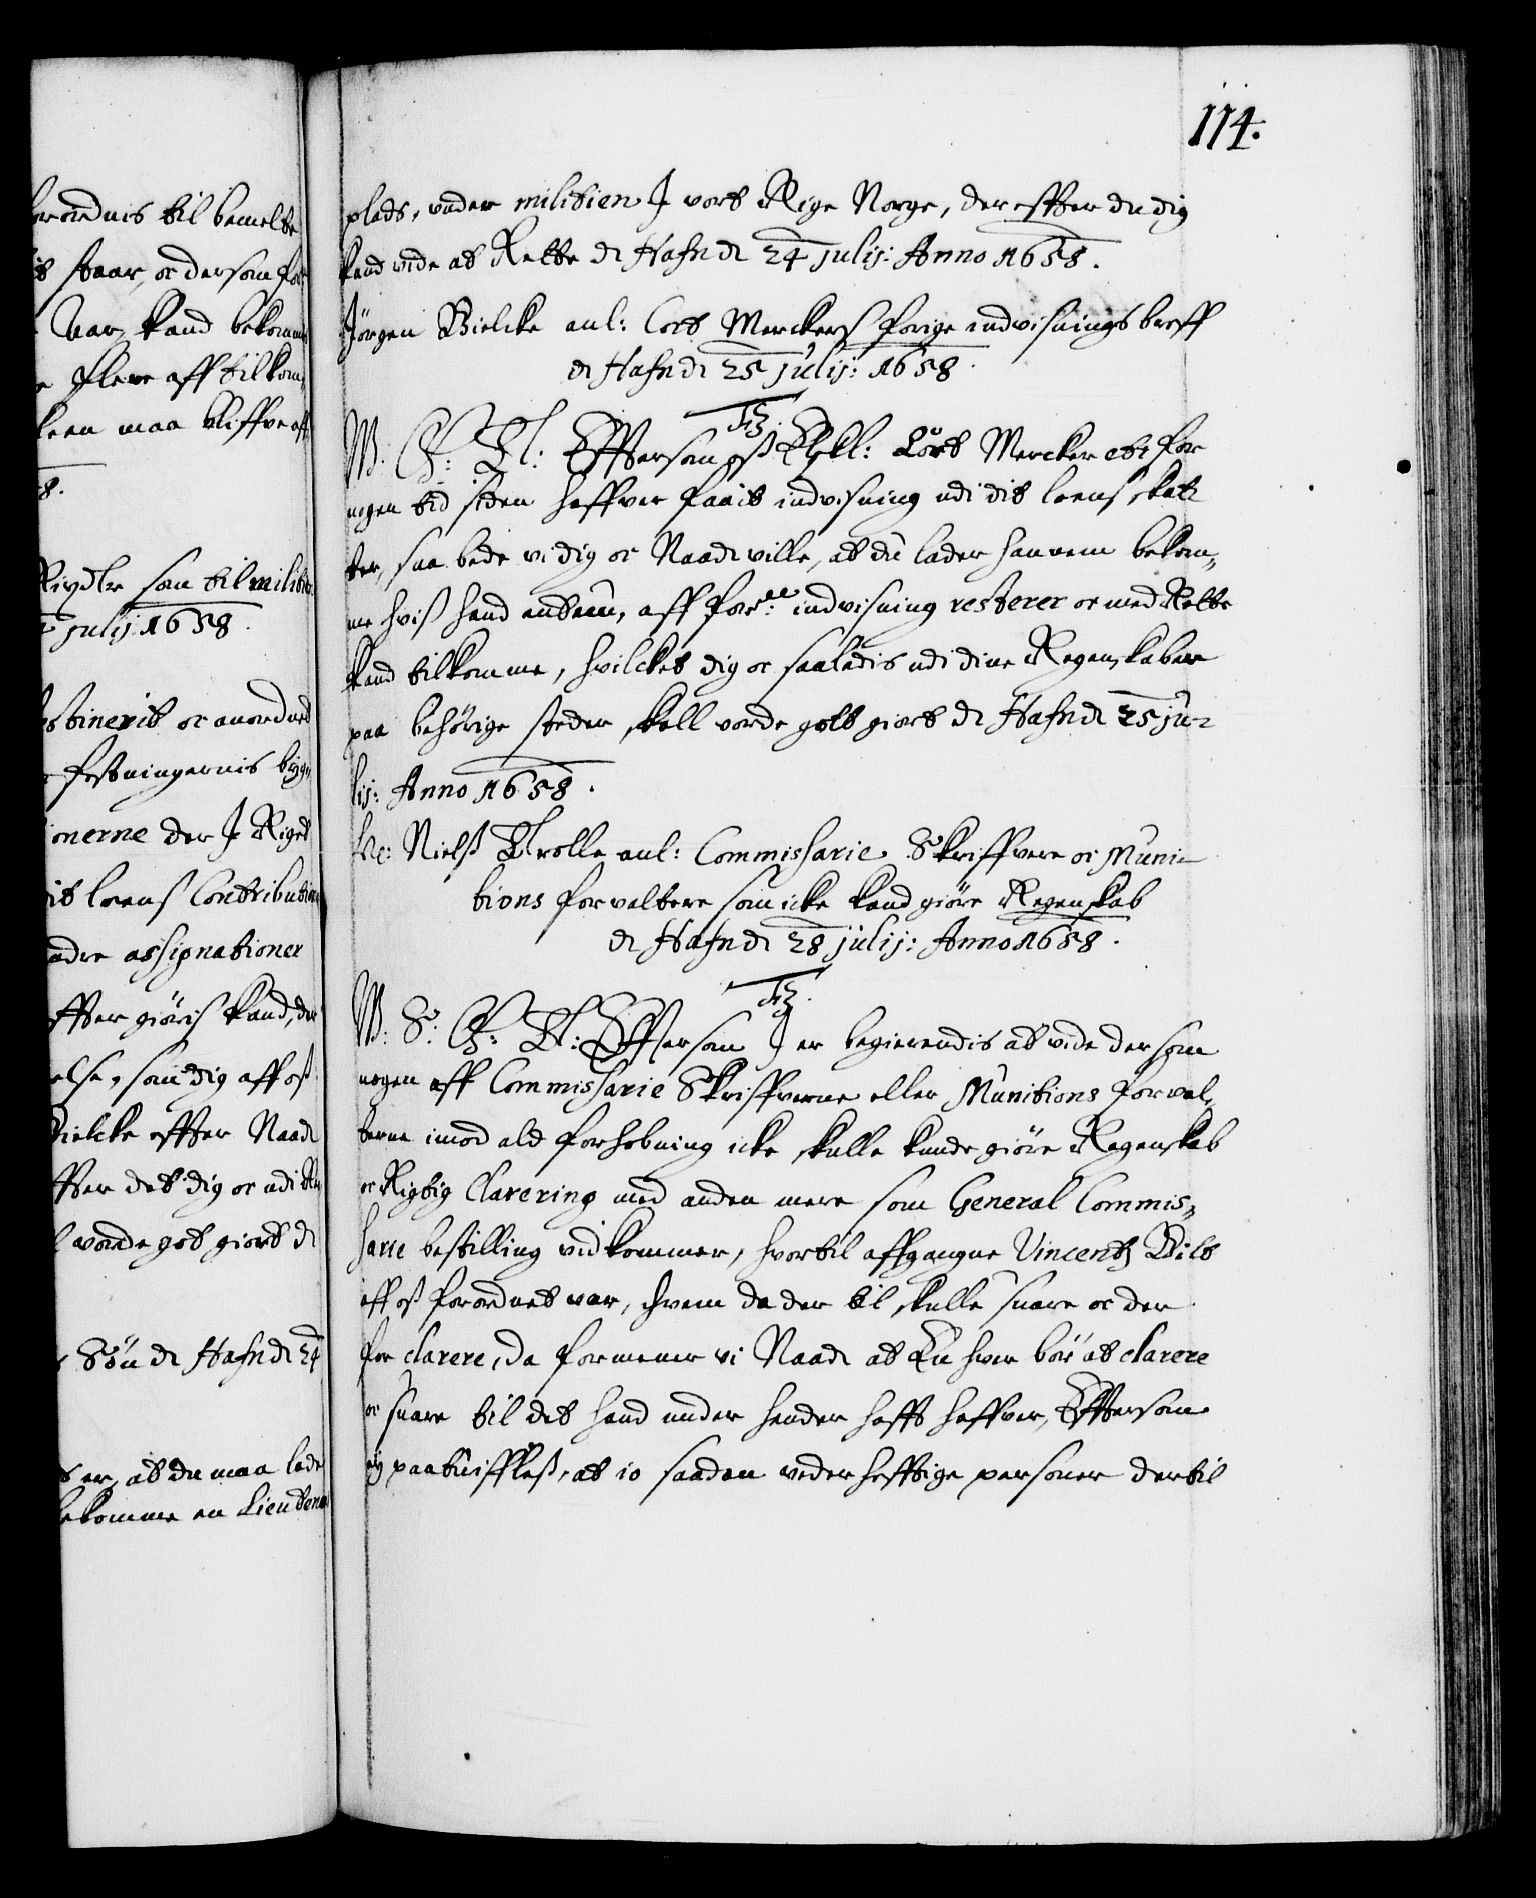 114.
forordnis til bemelte
staar, oc dersom for
var, kand bekomme
flere aff tilkom,
leen maa bliffve aff
8.
Rixdlr som til militien
julij 1658.
destinerit oc anordned
festningernis byg,
onerne der J Riget
dit leens Contribution
andre assignationer
effter giöris kand, der
else, som dig aff oss
Bielcke effter Naade
effter det dig oc udi Re
vorde got giort dt
Sön dt Hafn dt 24
er, at du maa lade
bekomme en Lieutenan
plads, under militien J vort Rige Norge, der effter du dig
kand vide at Rette dt Hafn dt 24 Julij: Anno 1658.
Jörgen Bielcke anl: Cort Merckers forige indvisnings breff
dt Hafn dt 25 Julij: 1658.
F3.
W. G: T: Effersom oss Elskl: Cort Mercker etc for
nogen tid siden haffver faait indvisning udi dit leens skat-
ter, saa bede vi dig oc Naadl ville, at du lader hannem bekom,
me hvis hand endnu, aff for:ne indvisning resterer oc med Rette
kand tilkomme, hvilcket dig oc saaledis udi dine Regenskaber
paa behörige steder skall vorde gott giort dt Hafn dt 25 ju-
lij: Anno 1658.
Hr: Nielss Trolle anl: Commissarie Skriffvere oc Muni-
tions forvaltere som icke kand giöre Regenskab
dt Hafn dt 28 julij: Anno 1658.
F3.
W: S: G: T: Effersom J er begierendis at vide dersom
nogen aff Commissarie Skriffverne eller Munitions forval,
terne imod ald forhobning icke skulle kunde giöre Regenskab
oc Rigtig Clarering med anden mere som General Commis,
sarie bestilling vidkommer, hvortil affgangne Vincentz Bilt
aff oss forordnet var, hvem da der til skulle svare oc der
for clarere, da formener vi Naadl at En hver bör at clarere
oc svare til det hand under hender hafft haffver, Effersom
ey paatuiffless, at io saadan vederhefftige personer dertil